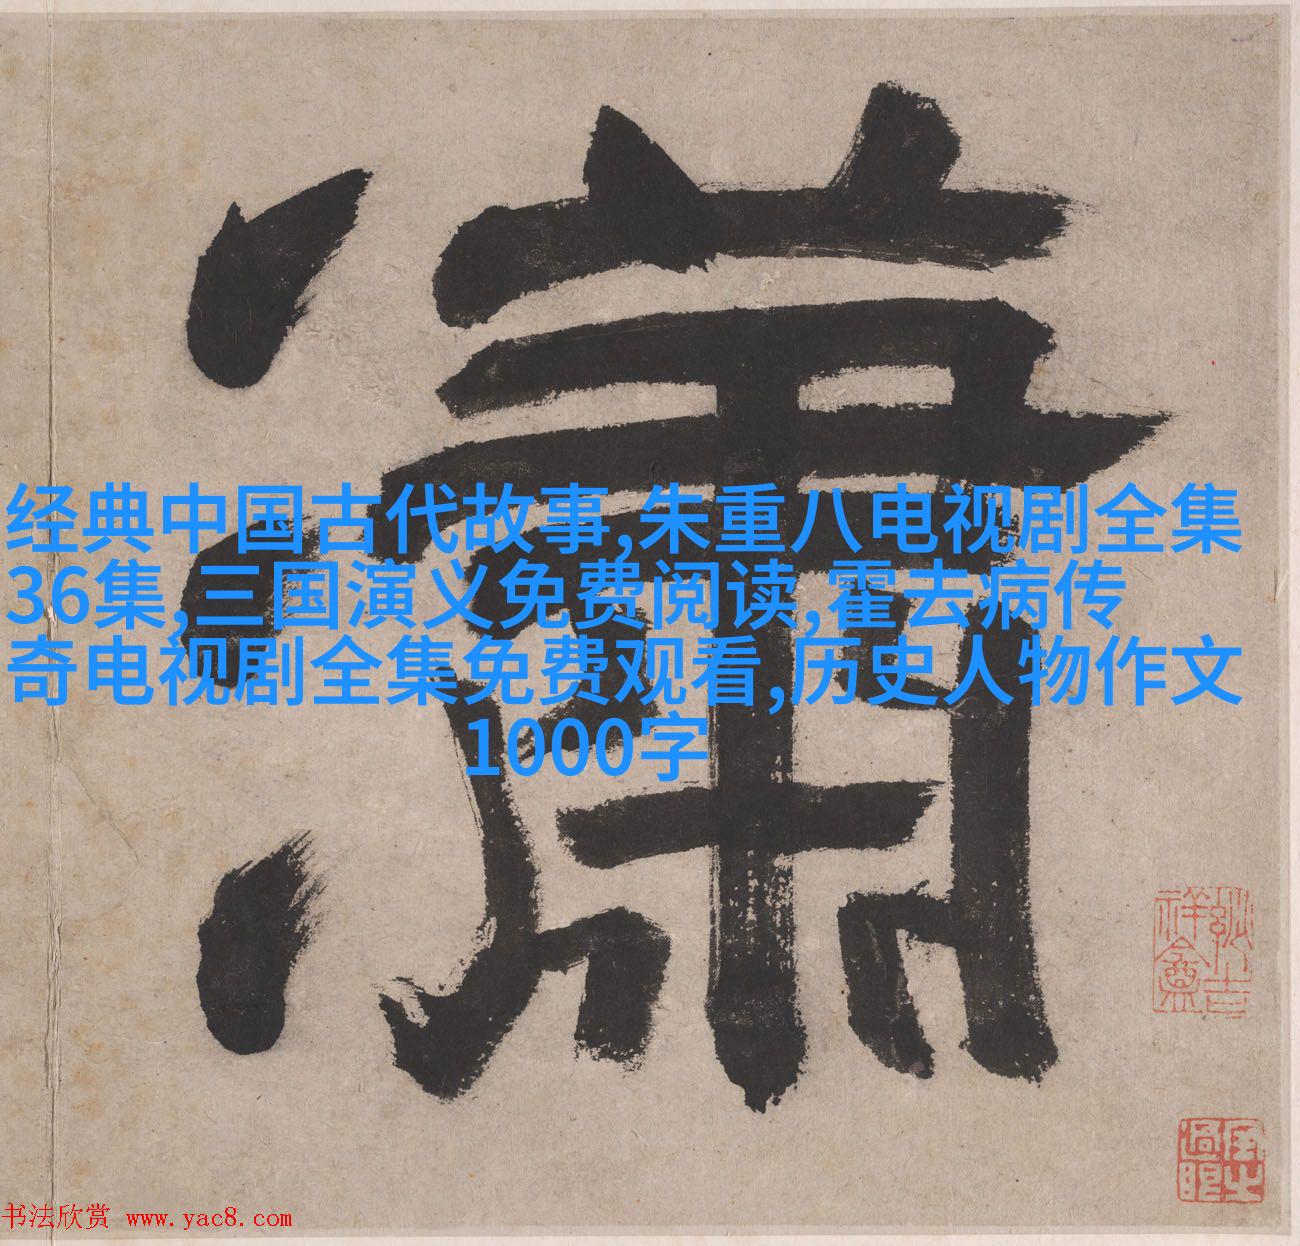 瀟
经典中国古代故事,朱重八电视剧全集
36集,三国演义免费阅读,霍去病传
奇电视剧全集免费观看,历史人物作文
1000字
书法欣赏 www.yac8.com